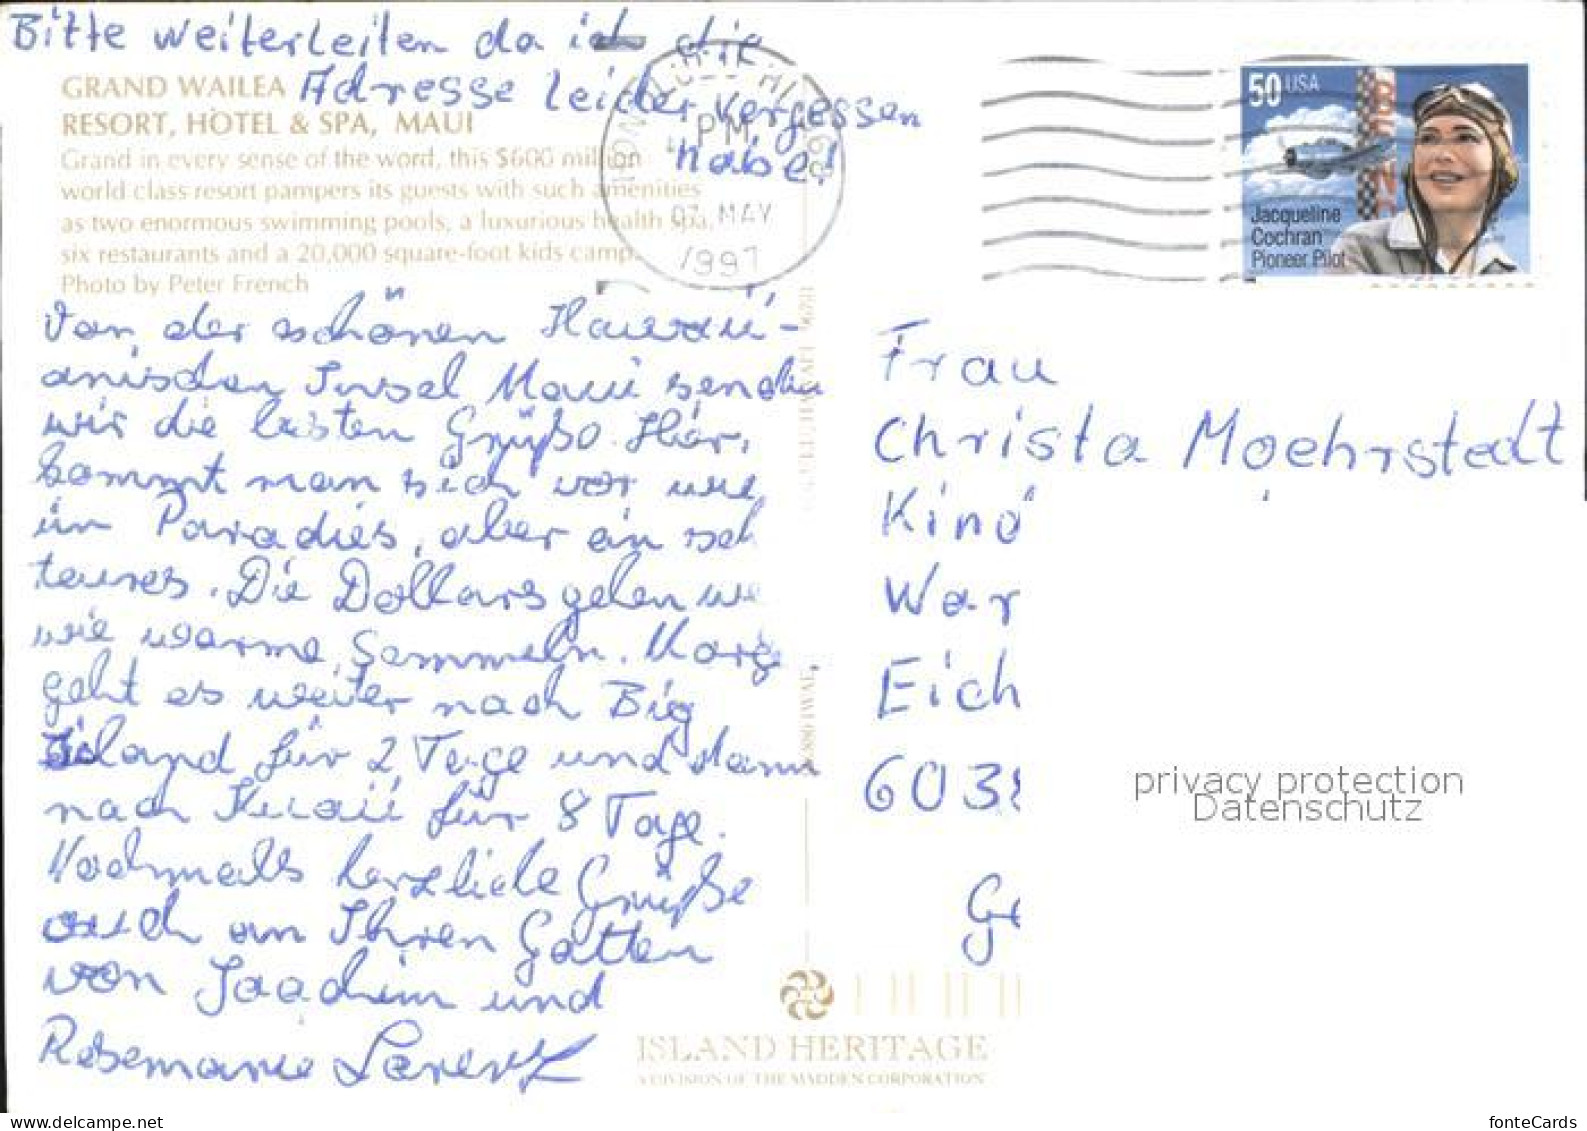 Bitte weiterleiten da ich die
Adresse leider vergessen
habe!
GRAND WAILEA
RESORT, HOTEL & SPA, MAUI
Grand in every sense of the word, this $600 million
world class resort pampers its guests with such amenities
as two enormous swimming pools, a luxurious health spa,
six restaurants and a 20,000 square-foot kids camp.
Photo by Peter French
PM
07 MAY
1997
50 USA
Jacqueline
Cochran
Pioneer Pilot
Von der schönen Hawaii-
anischen Insel Maui senden
wir die besten Grüße. Hier
kommt man sich vor wie
im Paradies, aber ein seh
teures. Die Dollars gehen we
wie warme Semmeln. Morge
geht es weiter nach Big
Island für 2 Tage und dann
nach Kauai für 8 Tage.
Nochmals herzliche Grüße
auch an Ihren Gatten
von Joachim und
Rosemarie
Frau
Christa Moehrstedt
Kind
War
Eich
6038
Ge
privacy protection
Datenschutz
ISLAND HERITAGE
A DIVISION OF THE MADDEN CORPORATION
www.delcampe.net
fonteCards